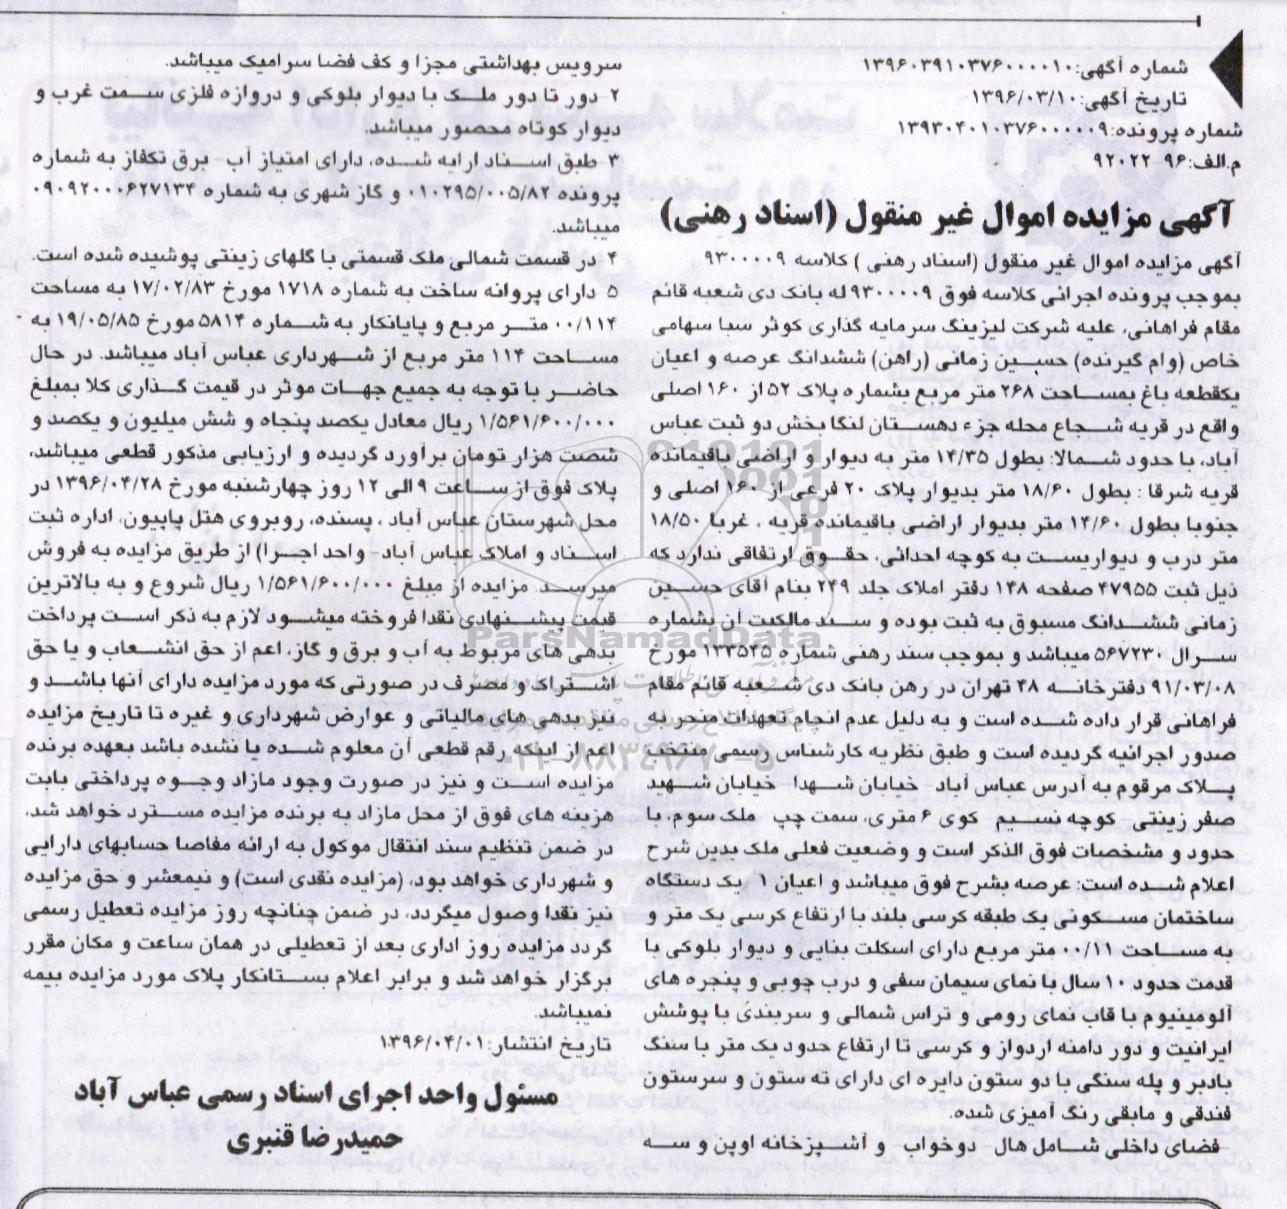 شماره آگهی: ۱۳۹۶۰۳۹۱۰۳۷۶۰۰۰۰۱۰
تاریخ آگهی: ۱۳۹۶/۰۳/۱۰
شماره پرونده: ۱۳۹۳۰۴۰۱۰۳۷۶۰۰۰۰۰۹
م.الف: ۹۶-۹۲۰۲۲
آگهی مزایده اموال غیر منقول (اسناد رهنی)
آگهی مزایده اموال غیر منقول (اسناد رهنی ) کلاسه ۹۳۰۰۰۰۹
بموجب پرونده اجرائی کلاسه فوق ۹۳۰۰۰۰۹ له بانک دی شعبه قائم
مقام فراهانی، علیه شرکت لیزینگ سرمایه گذاری کوثر سبا سهامی
خاص (وام گیرنده) حسین زمانی (راهن) ششدانگ عرصه و اعیان
یکقطعه باغ بمساحت ۲۶۸ متر مربع بشماره پلاک ۵۲ از ۱۶۰ اصلی
واقع در قریه شجاع محله جزء دهستان لنگا بخش دو ثبت عباس
آباد، با حدود شمالا: بطول ۱۴/۳۵ متر به دیوار و اراضی باقیمانده
قریه شرقا : بطول ۱۸/۶۰ متر بدیوار پلاک ۲۰ فرعی از ۱۶۰ اصلی و
جنوبا بطول ۱۴/۶۰ متر بدیوار اراضی باقیمانده قریه ، غربا ۱۸/۵۰
متر درب و دیواریست به کوچه احداثی. حقوق ارتفاقی ندارد که
ذیل ثبت ۴۷۹۵۵ صفحه ۱۴۸ دفتر املاک جلد ۲۴۹ بنام آقای حسین
زمانی ششدانگ مسبوق به ثبت بوده و سند مالکیت آن بشماره
سرال ۵۶۷۲۳۰ میباشد و بموجب سند رهنی شماره ۱۲۳۵۴۵ مورخ
۹۱/۰۳/۰۸ دفترخانه ۴۸ تهران در رهن بانک دی شعبه قائم مقام
فراهانی قرار داده شده است و به دلیل عدم انجام تعهدات منجر به
صدور اجرائیه گردیده است و طبق نظریه کارشناس رسمی منتخب
پلاک مرقوم به آدرس عباس آباد- خیابان شهدا- خیابان شهید
صفر زینتی- کوچه نسیم- کوی ۶ متری، سمت چپ- ملک سوم، با
حدود و مشخصات فوق الذکر است و وضعیت فعلی ملک بدین شرح
اعلام شده است: عرصه بشرح فوق میباشد و اعیان ۱- یک دستگاه
ساختمان مسکونی یک طبقه کرسی بلند با ارتفاع کرسی یک متر و
به مساحت ۰۰/۱۱۰ متر مربع دارای اسکلت بنایی و دیوار بلوکی با
قدمت حدود ۱۰ سال با نمای سیمان سفی و درب چوبی و پنجره های
آلومینیوم با قاب نمای رومی و تراس شمالی و سربندی با پوشش
ایرانیت و دور دامنه اردواز و کرسی تا ارتفاع حدود یک متر با سنگ
بادبر و پله سنگی با دو ستون دایره ای دارای ته ستون و سرستون
فندقی و مابقی رنگ آمیزی شده.
فضای داخلی شامل هال- دوخواب- و آشپزخانه اوپن و سه
سرویس بهداشتی مجزا و کف فضا سرامیک میباشد.
۲- دور تا دور ملک با دیوار بلوکی و دروازه فلزی سمت غرب و
دیوار کوتاه محصور میباشد.
۳- طبق اسناد ارایه شده، دارای امتیاز آب- برق تکفاز به شماره
پرونده ۰۱۰۲۹۵/۰۰۵/۸۲ و گاز شهری به شماره ۰۹۰۹۲۰۰۰۶۲۷۱۳۴
میباشد.
۴- در قسمت شمالی ملک قسمتی با گلهای زینتی پوشیده شده است.
۵- دارای پروانه ساخت به شماره ۱۷۱۸ مورخ ۱۷/۰۲/۸۳ به مساحت
۰۰/۱۱۴ متر مربع و پایانکار به شماره ۵۸۱۴ مورخ ۱۹/۰۵/۸۵ به
مساحت ۱۱۴ متر مربع از شهرداری عباس آباد میباشد. در حال
حاضر با توجه به جمیع جهات موثر در قیمت گذاری کلا بمبلغ
۱/۵۶۱/۶۰۰/۰۰۰ ریال معادل یکصد پنجاه و شش میلیون و یکصد و
شصت هزار تومان برآورد گردیده و ارزیابی مذکور قطعی میباشد،
پلاک فوق از ساعت ۹ الی ۱۲ روز چهارشنبه مورخ ۱۳۹۶/۰۴/۲۸ در
محل شهرستان عباس آباد ، پسنده، روبروی هتل پاپیون، اداره ثبت
اسناد و املاک عباس آباد- واحد اجرا) از طریق مزایده به فروش
میرسد. مزایده از مبلغ ۱/۵۶۱/۶۰۰/۰۰۰ ریال شروع و به بالاترین
قیمت پیشنهادی نقدا فروخته میشود لازم به ذکر است پرداخت
بدهی های مربوط به آب و برق و گاز، اعم از حق انشعاب و یا حق
اشتراک و مصرف در صورتی که مورد مزایده دارای آنها باشد و
نیز بدهی های مالیاتی و عوارض شهرداری و غیره تا تاریخ مزایده
اعم از اینکه رقم قطعی آن معلوم شده یا نشده باشد بعهده برنده
مزایده است و نیز در صورت وجود مازاد وجوه پرداختی بابت
هزینه های فوق از محل مازاد به برنده مزایده مسترد خواهد شد،
در ضمن تنظیم سند انتقال موکول به ارائه مفاصا حسابهای دارایی
و شهرداری خواهد بود، (مزایده نقدی است) و نیمعشر و حق مزایده
نیز نقدا وصول میگردد، در ضمن چنانچه روز مزایده تعطیل رسمی
گردد مزایده روز اداری بعد از تعطیلی در همان ساعت و مکان مقرر
برگزار خواهد شد و برابر اعلام بستانکار پلاک مورد مزایده بیمه
نمیباشد.
تاریخ انتشار: ۱۳۹۶/۰۴/۰۱
مسئول واحد اجرای اسناد رسمی عباس آباد
حمیدرضا قنبری
ParsNamadData
۰۲۱-۸۸۳۴۹۶۷۰-۵